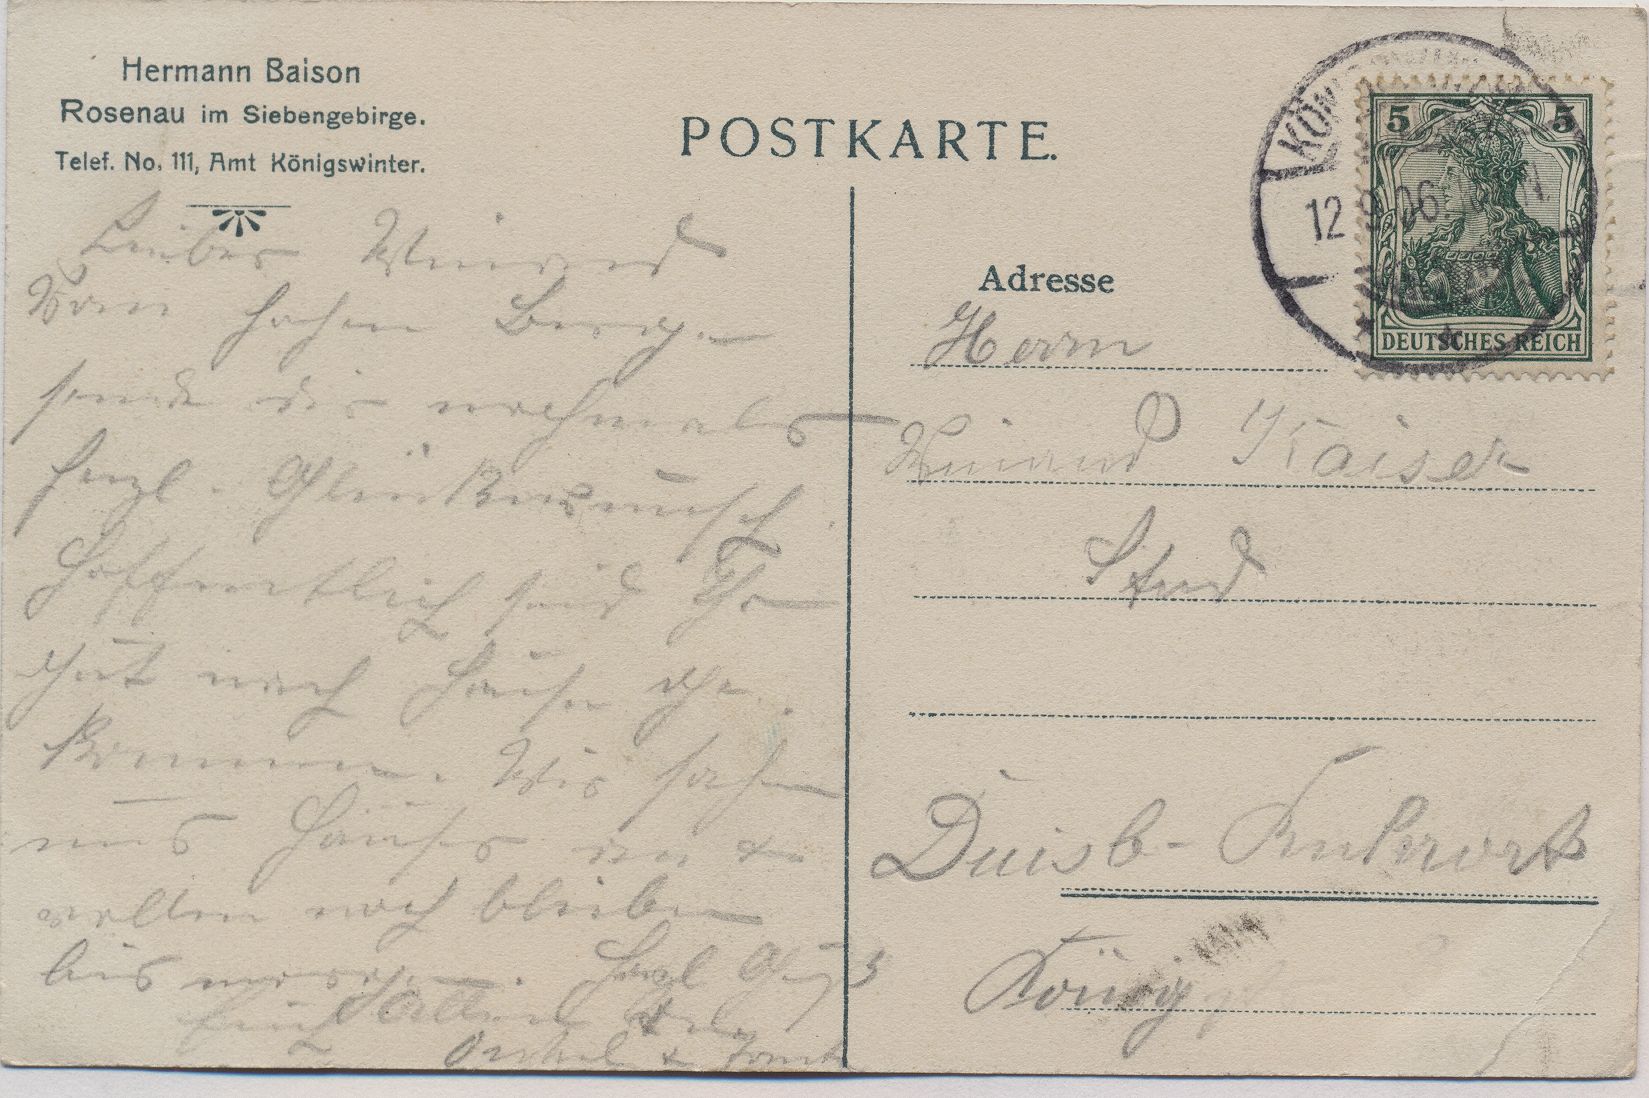 Hermann Baison
Rosenau im Siebengebirge.
Telef. No. 111, Amt Königswinter.
POSTKARTE.
5 5
12.9.06
DEUTSCHES REICH
Adresse
Herrn
Winand Kaiser
Stud
Duisb-Ruhrort
König
Lieber Winand
Vom hohen Berge
sende dir nochmals
herzl. Glückwunsch
Hoffentlich seid Ihr
gut nach Hause ge.
kommen. Wir sahen
uns Häuser an &
wollen noch bleiben
bis morgen. Herzl Gruß
Onkel & Tante